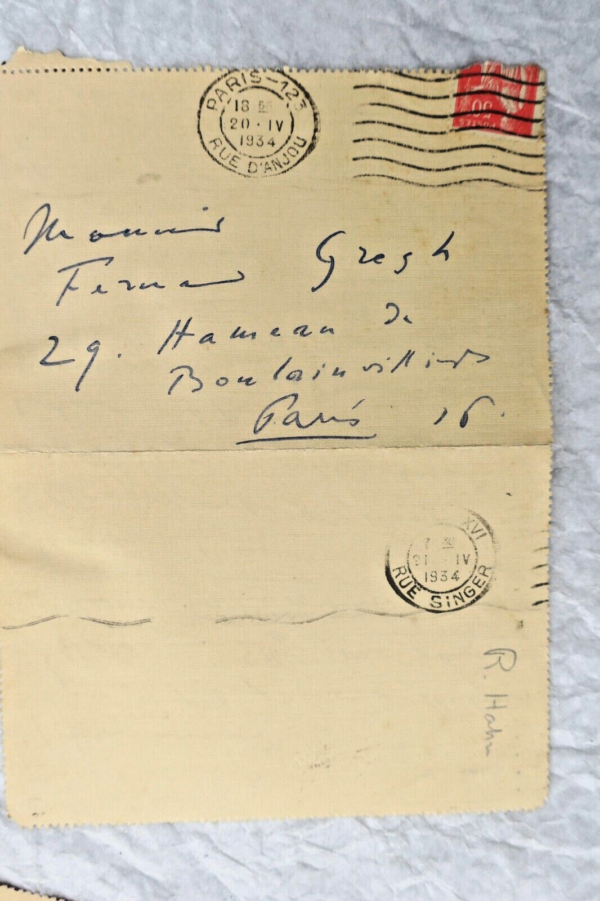 PARIS-123
18
20 · IV
1934
RUE D'ANJOU
50
Monsieur
Fernand Gregh
29. Hameau de
Boulainvilliers
Paris 16.
XVI
7 30
21 IV
1934
RUE SINGER
R. Hahn